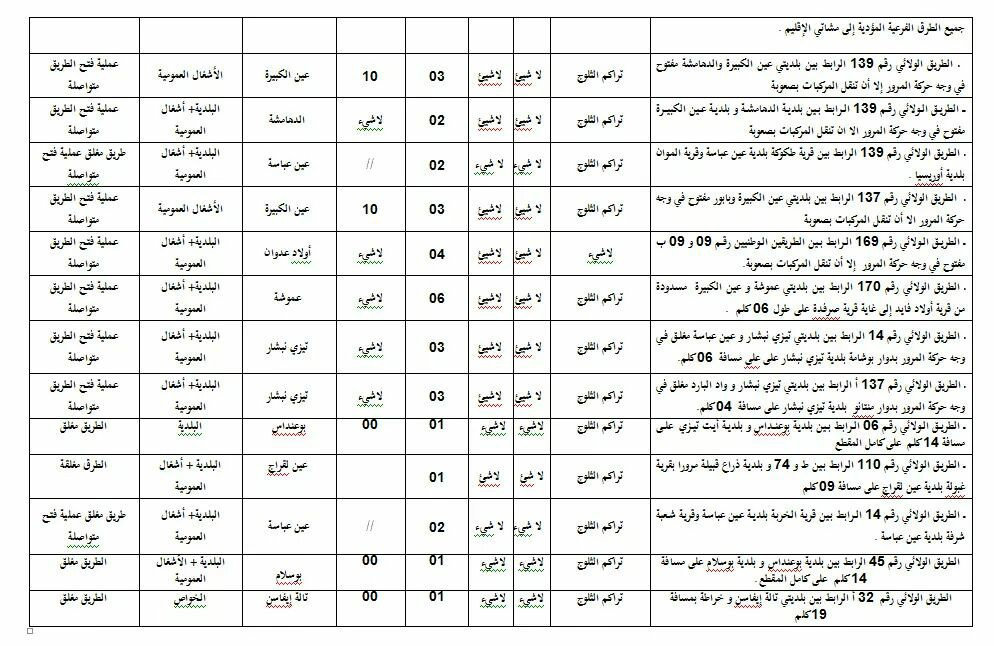 جميع الطرق الفرعية المؤدية إلى مشاتي الإقليم .
. الطريق الولائي رقم 139 الرابط بين بلديتي عين الكبيرة والدهامشة مفتوح
في وجه حركة المرور إلا أن تنقل المركبات بصعوبة
تراكم الثلوج
لا شيئ
لاشيئ
03
10
عين الكبيرة
الأشغال العمومية
عملية فتح الطريق
متواصلة
ـ الطريق الولائي رقم 139 الرابط بين بلدية الدهامشة و بلدية عين الكبيرة
مفتوح في وجه حركة المرور الا ان تنقل المركبات بصعوبة
تراكم الثلوج
لا شيئ
لاشيئ
02
لاشيء
الدهامشة
البلدية+ أشغال
العمومية
عملية فتح الطريق
متواصلة
. الطريق الولائي رقم 139 الرابط بين قرية طكوكة بلدية عين عباسة وقرية الموان
بلدية أوريسيا .
تراكم الثلوج
لا شيء
لا شيء
02
//
عين عباسة
البلدية+ أشغال
العمومية
طريق مغلق عملية فتح
متواصلة
. الطريق الولائي رقم 137 الرابط بين بلديتي عين الكبيرة وبابور مفتوح في وجه
حركة المرور الا أن تنقل المركبات بصعوبة
تراكم الثلوج
لا شيئ
لاشيئ
03
10
عين الكبيرة
الأشغال العمومية
عملية فتح الطريق
متواصلة
ـ الطريق الولائي رقم 169 الرابط بين الطريقين الوطنيين رقم 09 و 09 ب
مفتوح في وجه حركة المرور إلا أن تنقل المركبات بصعوبة.
لاشيء
لا شيئ
لاشيئ
04
لاشيء
أولاد عدوان
البلدية+ أشغال
العمومية
عملية فتح الطريق
متواصلة
. الطريق الولائي رقم 170 الرابط بين بلديتي عموشة و عين الكبيرة مسدودة
من قرية أولاد فايد إلى غاية قرية صرفدة على طول 06 كلم .
تراكم الثلوج
لا شيئ
لاشيئ
06
لاشيء
عموشة
البلدية+ أشغال
العمومية
عملية فتح الطريق
متواصلة
. الطريق الولائي رقم 14 الرابط بين بلديتي تيزي نبشار و عين عباسة مغلق في
وجه حركة المرور بدوار بوشامة بلدية تيزي نبشار على على مسافة 06 كلم.
تراكم الثلوج
لا شيئ
لاشيئ
03
لاشيء
تيزي نبشار
البلدية+ أشغال
العمومية
عملية فتح الطريق
متواصلة
. الطريق الولائي رقم 137 أ الرابط بين بلديتي تيزي نبشار و واد البارد مغلق في
وجه حركة المرور بدوار منتانو بلدية تيزي نبشار على مسافة 04 كلم.
تراكم الثلوج
لا شيئ
لاشيئ
03
لاشيء
تيزي نبشار
البلدية+ أشغال
العمومية
عملية فتح الطريق
متواصلة
ـ الطريق الولائي رقم 06 الرابط بين بلدية بوعنداس و بلدية أيت تيزي على
مسافة 14 كلم على كامل المقطع
تراكم الثلوج
لاشيء
لاشيء
01
00
بوعنداس
البلدية
الطريق مغلق
ـ الطريق الولائي رقم 110 الرابط بين ط و 74 و بلدية ذراع قبيلة مرورا بقرية
غبولة بلدية عين لقراج على مسافة 09 كلم
تراكم الثلوج
لا شئ
لاشئ
01
عين لقراج
البلدية + أشغال
العمومية
الطرق مغلقة
ـ الطريق الولائي رقم 14 الرابط بين قرية الخربة بلدية عين عباسة وقرية شعبة
شرفة بلدية عين عباسة .
تراكم الثلوج
لا شيء
لا شيء
02
//
عين عباسة
البلدية+ أشغال
العمومية
طريق مغلق عملية فتح
متواصلة
الطريق الولائي رقم 45 الرابط بين بلدية بوعنداس و بلدية بوسلام على مسافة
14 كلم على كامل المقطع.
تراكم الثلوج
لاشيء
لاشيء
01
00
بوسلام
البلدية + الأشغال
العمومية
الطريق مغلق
الطريق الولائي رقم 32 أ الرابط بين بلديتي تالة إيفاسن و خراطة بمسافة
19 كلم
تراكم الثلوج
لاشيء
لاشيء
01
00
تالة إيفاسن
الخواص
الطريق مغلق